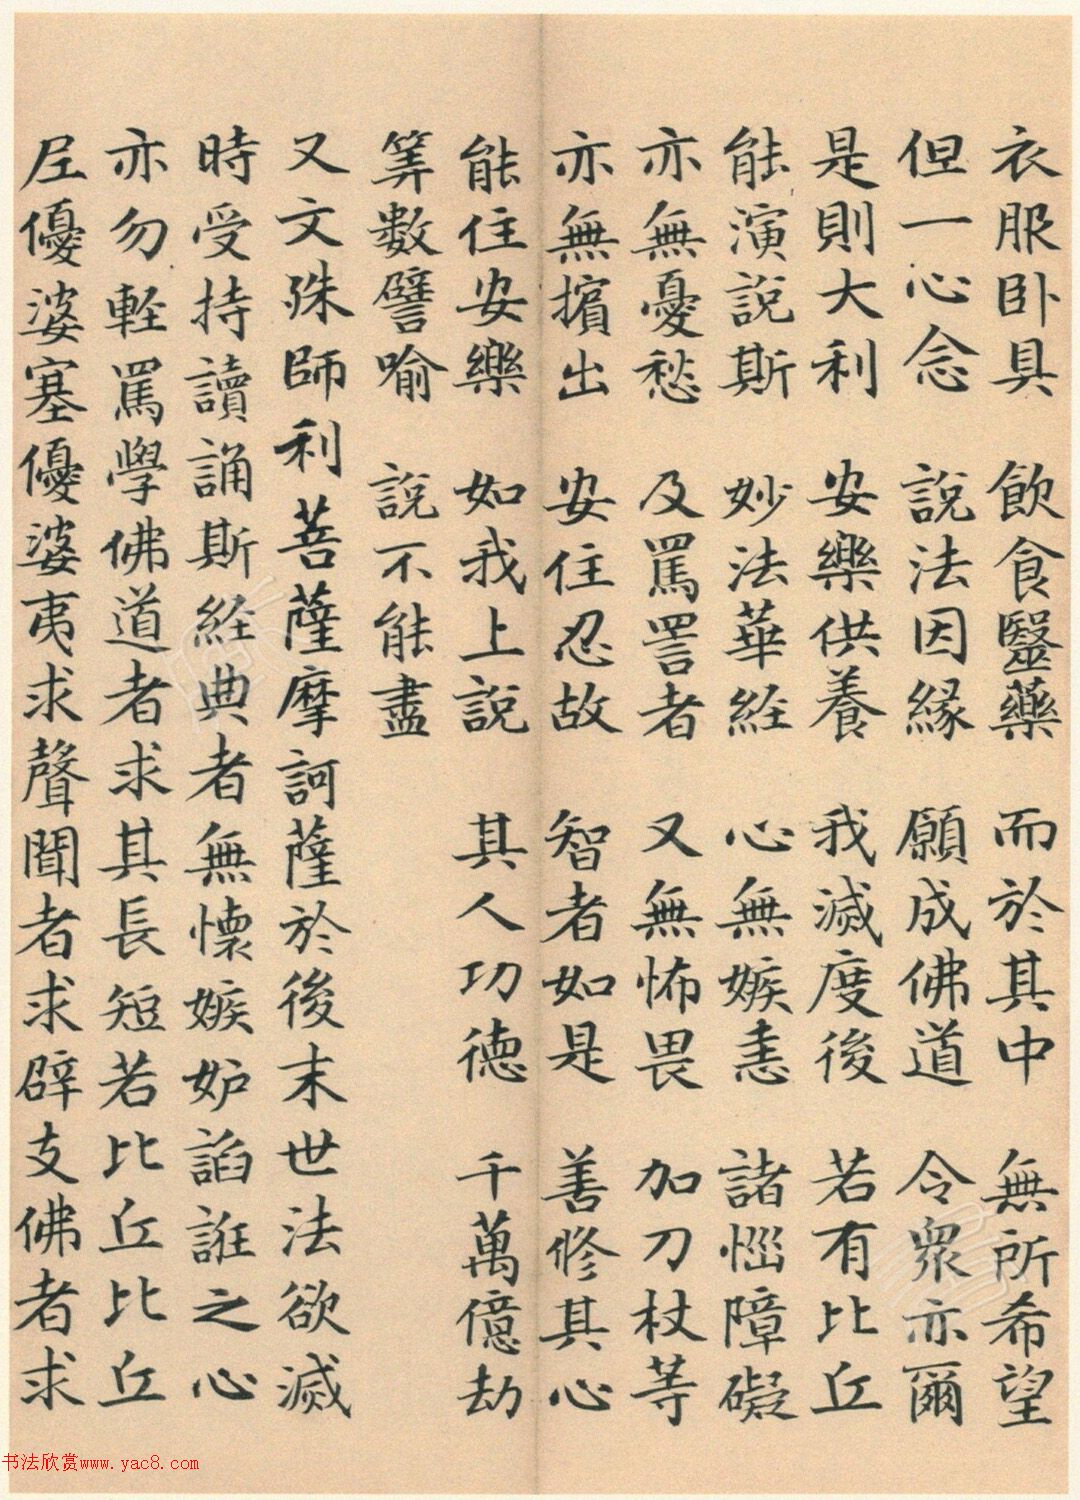 衣服卧具 飲食醫藥 而於其中 無所希望
但一心念 說法因緣 願成佛道 令眾亦爾
是則大利 安樂供養 我滅度後 若有比丘
能演說斯 妙法華經 心無嫉恚 諸惱障礙
亦無憂愁 及罵詈者 又無怖畏 加刀杖等
亦無擯出 安住忍故 智者如是 善修其心
能住安樂 如我上說 其人功德 千萬億劫
筭數譬喻 說不能盡
又文殊師利菩薩摩訶薩於後末世法欲滅
時受持讀誦斯經典者無懷嫉妒諂誑之心
亦勿輕罵學佛道者求其長短若比丘比丘
尼優婆塞優婆夷求聲聞者求辟支佛者求
书法欣赏www.yac8.com